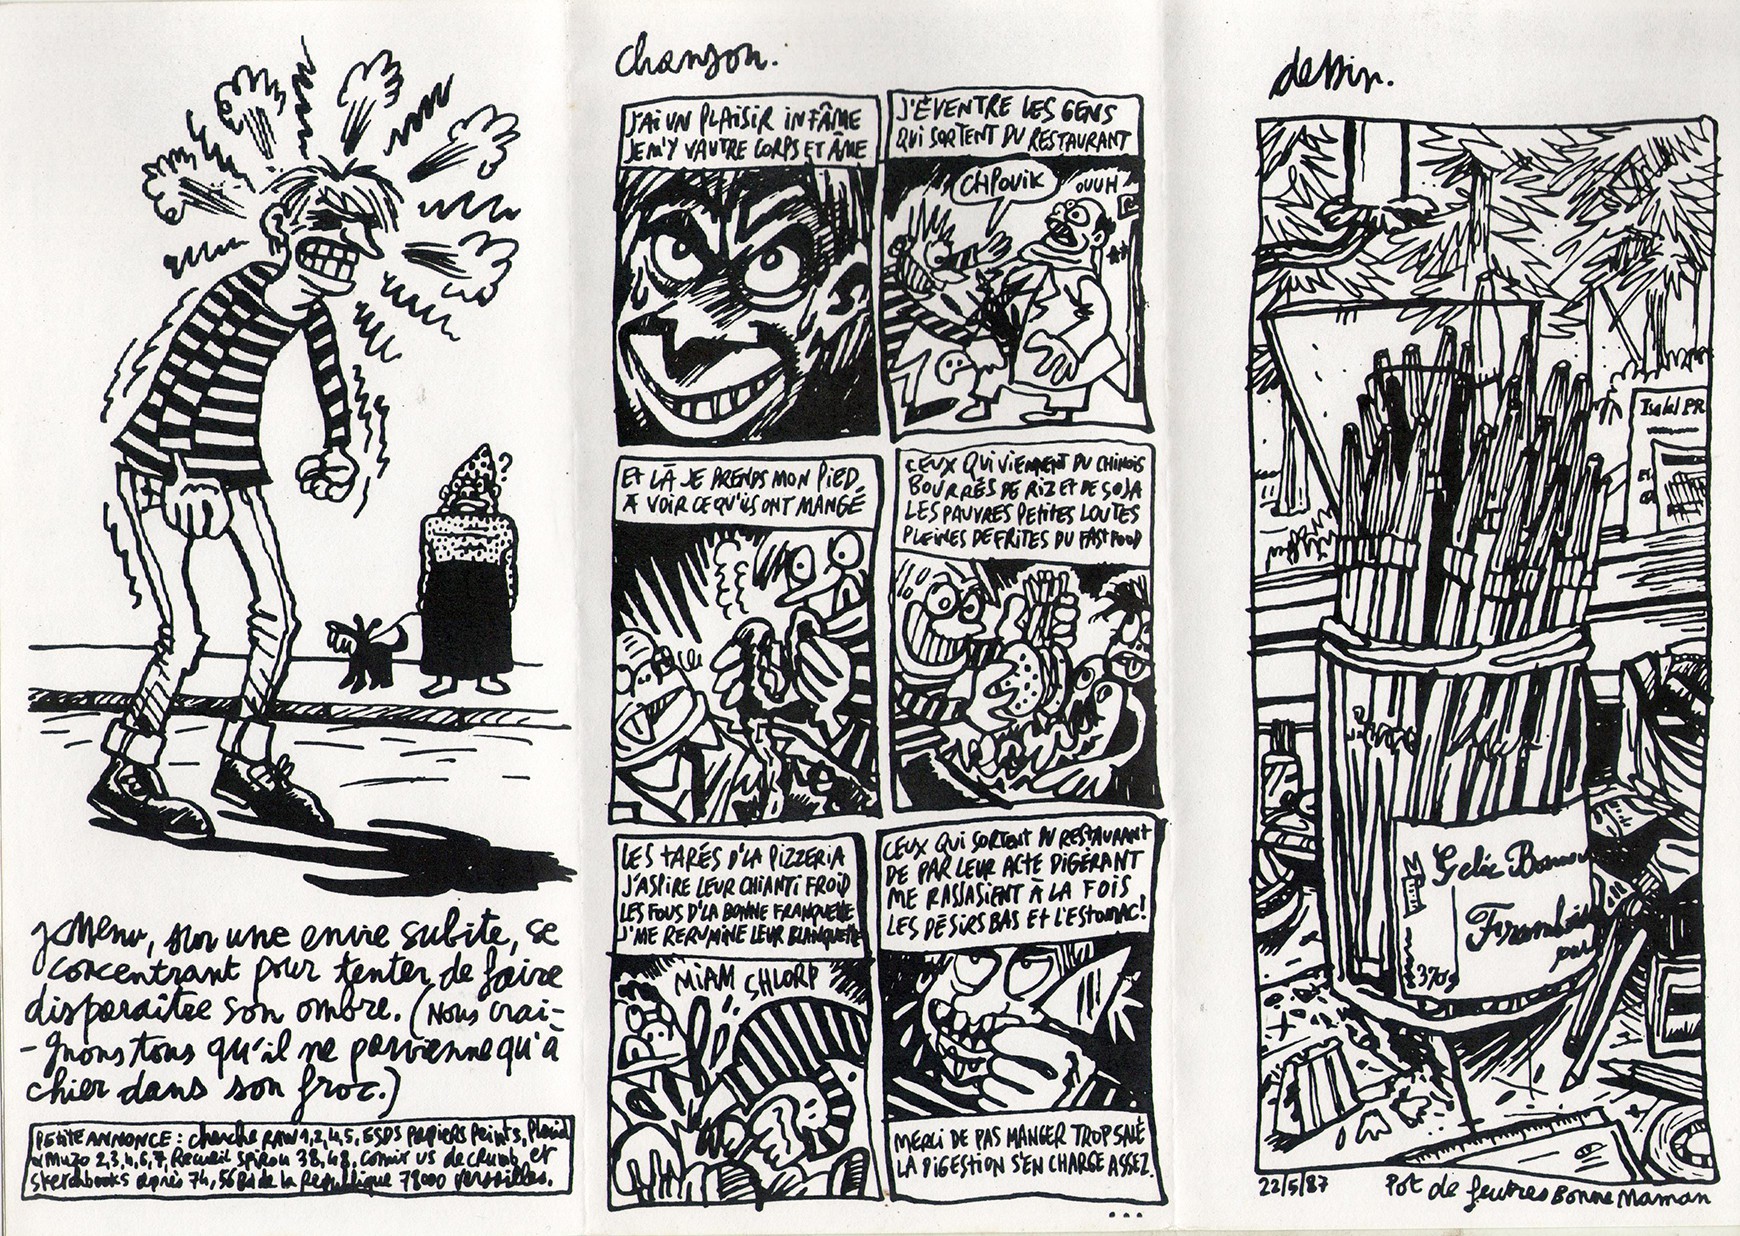 ?
jMenu, sur une envie subite, se
concentrant pour tenter de faire
disparaitre son ombre. (Nous crai-
-gnons tous qu'il ne parvienne qu'à
chier dans son froc.)
PETITE ANNONCE : cherche RAW 1,2,4,5, ESDS papiers Peints, Placid
et Muzo 2,3,4,6,7, Recueil Spirou 38,48, Comix US de Crumb, et
sketchbooks après 74, 56 Bd de la République 78000 Versailles.
chanson.
J'AI UN PLAISIR INFÂME
JE M'Y VAUTRE CORPS ET ÂME
J'ÉVENTRE LES GENS
QUI SORTENT DU RESTAURANT
CHPOUIK
OUUH
ET LÀ JE PRENDS MON PIED
À VOIR CE QU'ILS ONT MANGÉ
CEUX QUI VIENNENT DU CHINOIS
BOURRÉS DE RIZ ET DE SOJA
LES PAUVRES PETITES LOUTES
PLEINES DE FRITES DU FAST FOOD
LES TARÉS D'LA PIZZERIA
J'ASPIRE LEUR CHIANTI FROID
LES FOUS D'LA BONNE FRANQUETTE
J'ME RERUMINE LEUR BLANQUETTE
MIAM SHLORP
CEUX QUI SORTENT DU RESTAURANT
DE PAR LEUR ACTE DIGÉRANT
ME RASSASIENT À LA FOIS
LES DÉSIRS BAS ET L'ESTOMAC!
MERCI DE PAS MANGER TROP SALÉ
LA DIGESTION S'EN CHARGE ASSEZ.
...
dessin.
Gelée Bonne
Framboise
pur
370g
22/5/87
Pot de feutres Bonne Maman